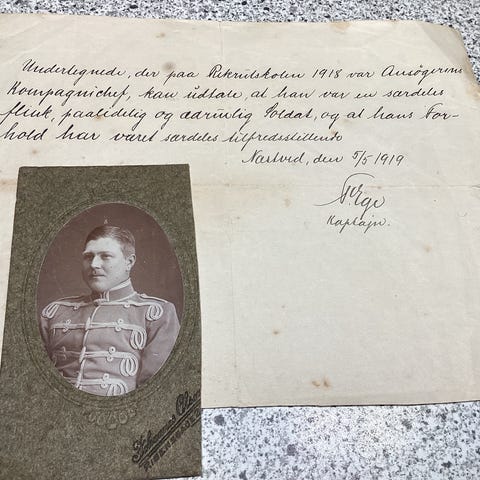 Underlegnede, der paa Rekrutskolen 1918 var Ansøgerens
Kompagnichef, kan udtale, at han var en særdeles
flink, paalidelig og ædruelig Soldat, og at hans For-
hold har været særdeles tilfredsstillende
Næstved, den 5/5 1919
Kaptajn.
Johannes